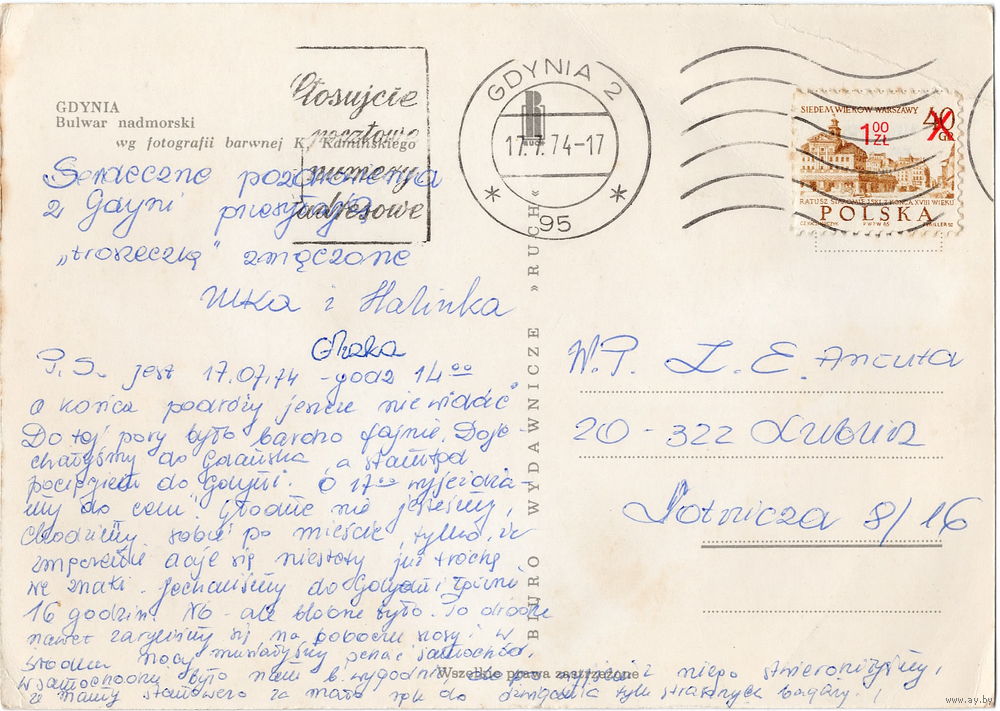 GDYNIA
Bulwar nadmorski
wg fotografii barwnej K. Kamińskiego
Stosujcie
pocztowe
numery
adresowe
GDYNIA 2
17.7.74-17
95
SIEDEM WIEKÓW WARSZAWY
40 GR
1 00 ZŁ
RATUSZ STAROMIEJSKI Z KOŃCA XVIII WIEKU
POLSKA
Serdeczne pozdrowienia
z Gdyni przesyłają
"troszeczkę" zmęczone
i Halinka
P.S. jest 17.07.74 - godz 14 00
a końca podróży jeszcze nie widać"
Do tej pory było bardzo fajnie. Doje-
chałyśmy do Gdańska, a stamtąd
pociągiem do Gdyni. O 17 00 wyjeżdża-
my do Głodne nie jesteśmy,
chodzimy sobie po mieście, tylko, że
zmęczenie daje się niestety już trochę
we znaki. Jechałyśmy do Gdyni
16 godzin. No - ale było. Po drodze
nawet się na poboczu szosy i w
środku nocy musiałyśmy samochód.
W samochodzie było nam b. wygodnie
że mamy stanowczo za mało rąk do dźwigania tylu strasznych bagaży.
BIURO WYDAWNICZE »RUCH«
RUCH
Wszelkie prawa zastrzeżone
W.P. Z. E. Ancuta
20-322 Lublin
Lotnicza 8/16
www.ay.by